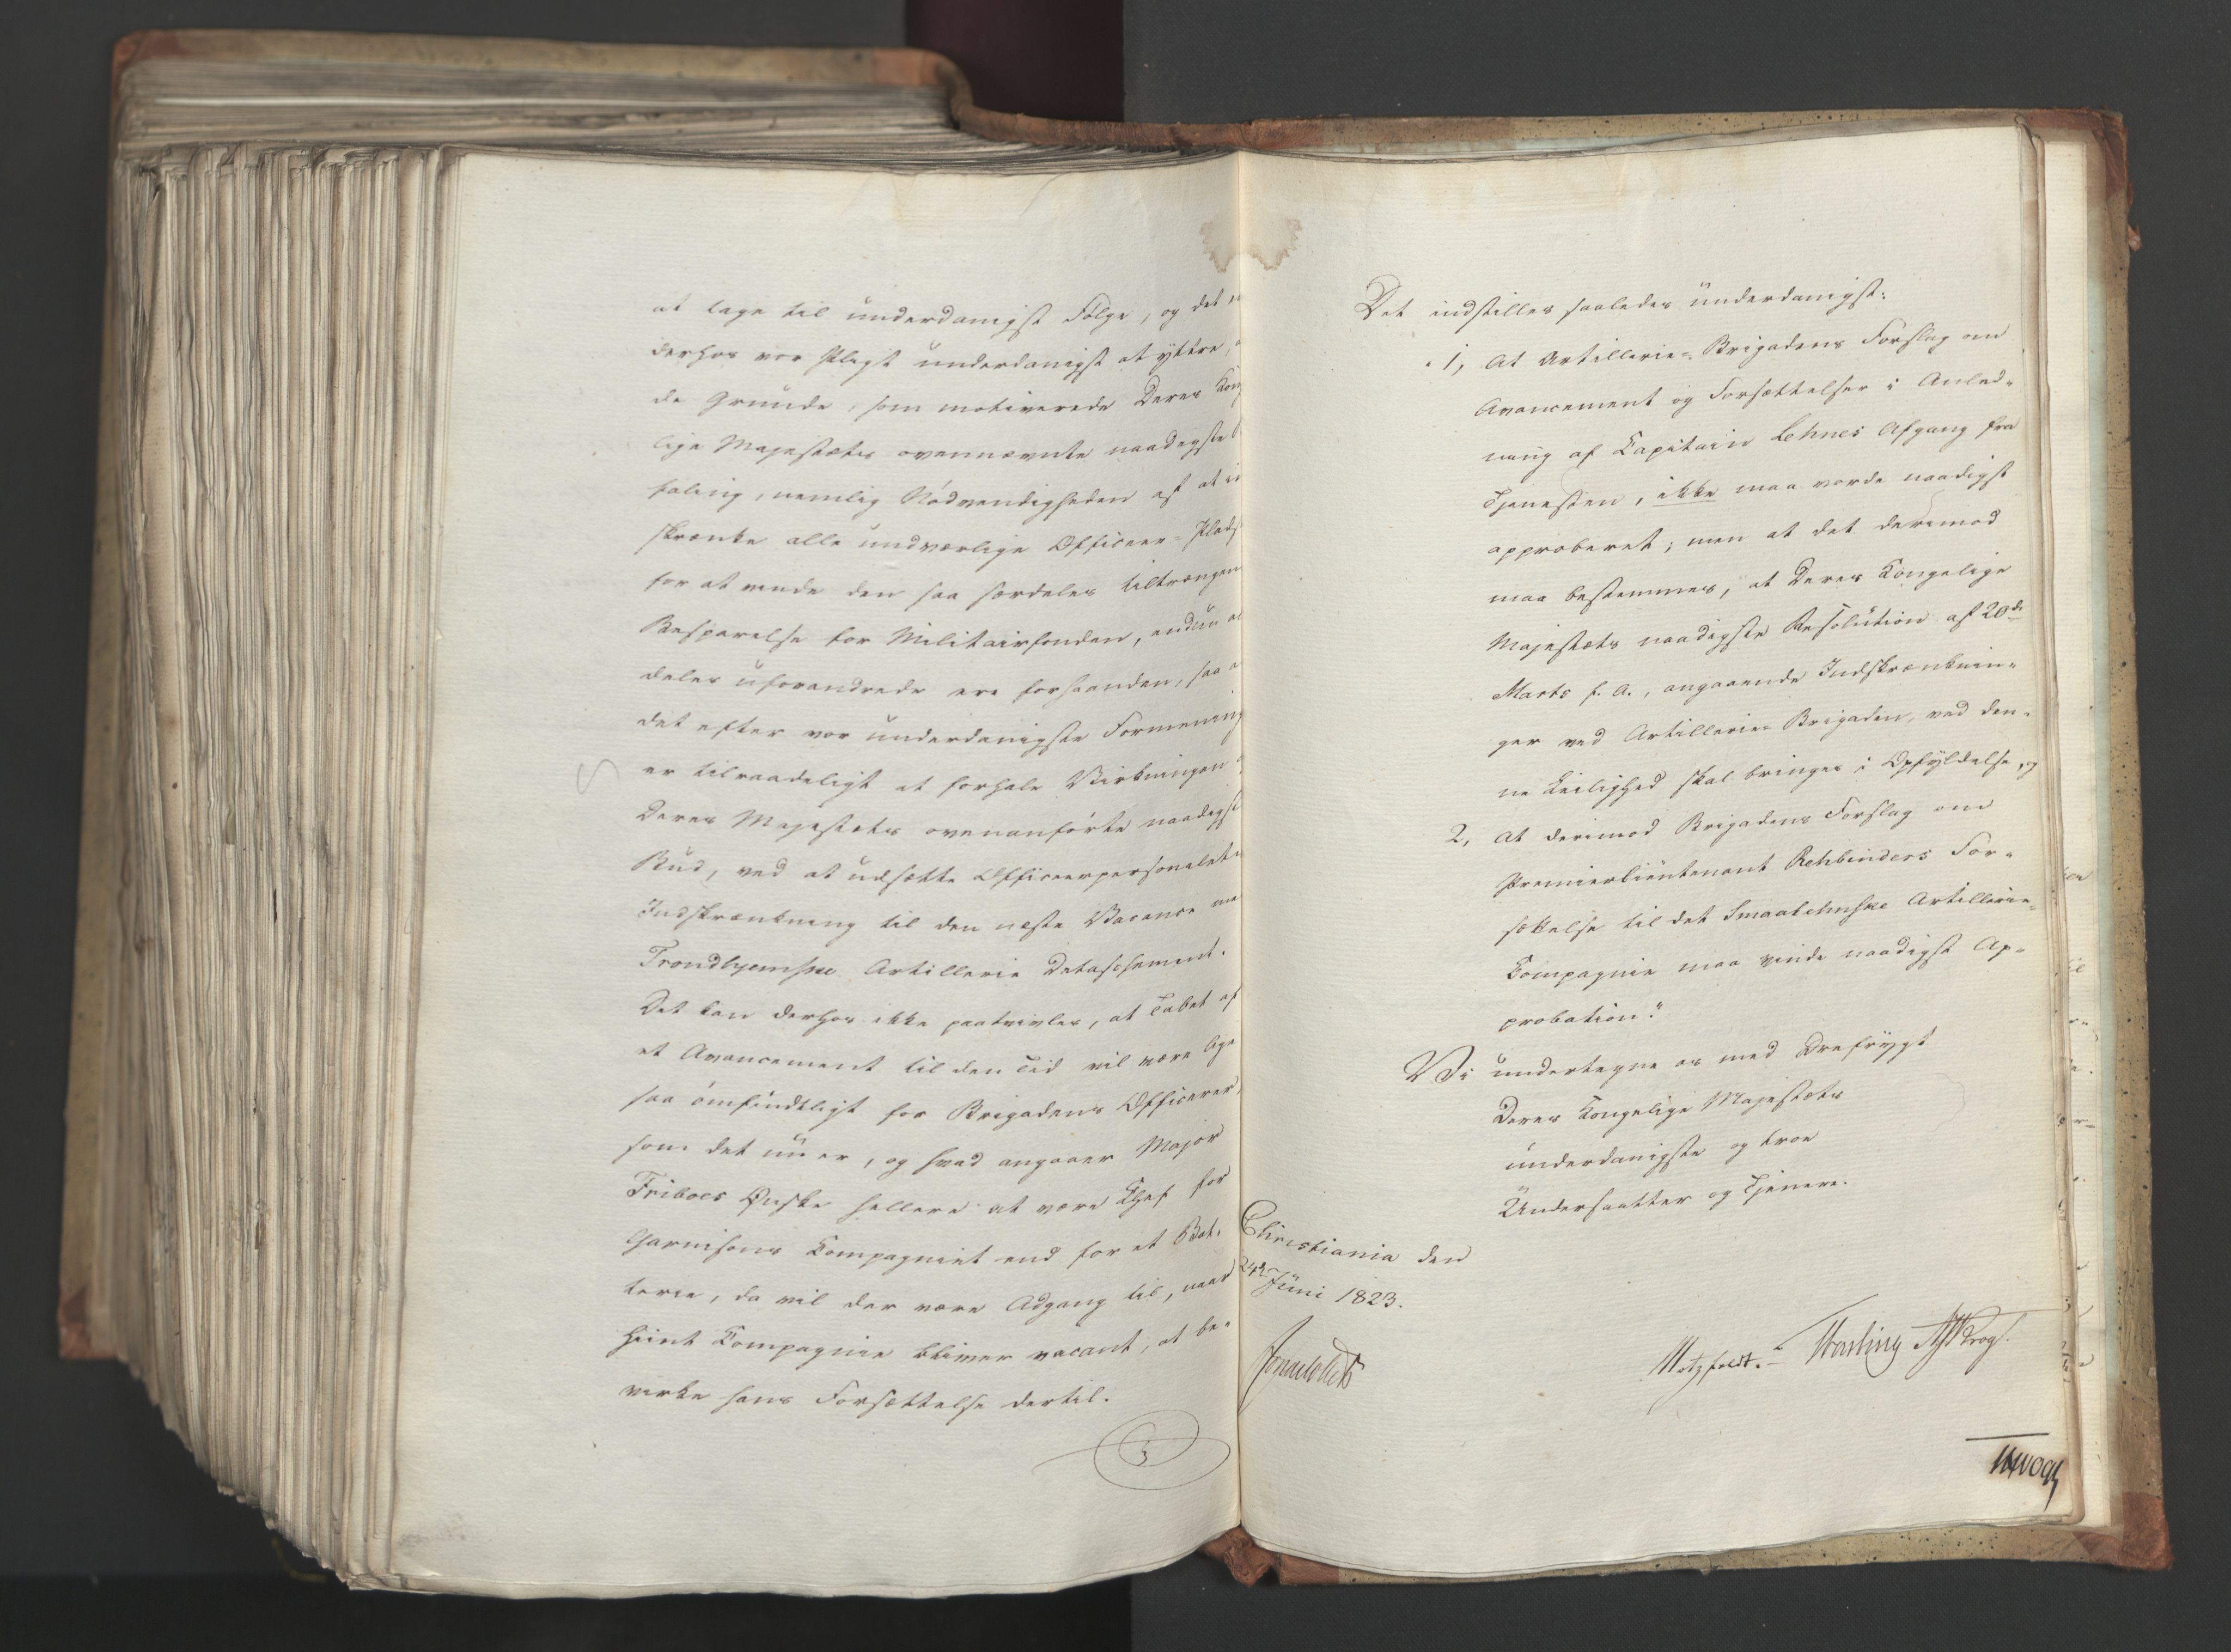 at tage til underdanigst Følge, og det
derhos vor Pligt underdanigst at yttre,
de Grunde, som motiverede Deres Kon
lige Majestæts ovennævnte naadigste
faling, nemlig Nødvendigheden af at in
skrænke alle undværlige Officeer-Plads
for at vinde den saa særdeles tiltrængen
Besparelse for Militairfonden, endnu al
deles uforandrede ere forhaanden, saa
det efter vor underdanigste Formening
er tilraadeligt at forhale Virkningen
Deres Majestæts ovenanførte naadigst
Bud, ved at udsætte Officeerpersonalets
Indskrænkning til den næste Vacance
Trondhjemske Artillerie Detaschement.
Det kan derhos ikke paatvivles, at Tabet af
et Avancement til den Tid vil være lige
saa ømfindtligt for Brigadens Officerer,
som det nu er, og hvad angaaer Major
Friboes Ønske hellere at være Chef for
Garnisons Compagniet end for et Bat-
terie, da vil der være Adgang til, naar
hiint Compagnie bliver vacant, at be-
virke hans Forsættelse dertil.
Det indstilles saaledes underdanigst:
1, At Artillerie-Brigadens Forslag om
Avancement og Forsættelser i Anled-
ning af Capitain Lehnes Afgang fra
Tjenesten, ikke maa vorde naadigst
approberet; men at det derimod
maa bestemmes, at Deres Kongelige
Majestæts naadigste Resolution af 20de
Marts f. A., angaaende Indskrænknin-
ger ved Artillerie-Brigaden, ved den-
ne Leilighed skal bringes i Opfyldelse, og
2, At derimod Brigadens Forslag om
Premierlieutenant Rehbinders For-
sættelse til det Smaalehnske Artillerie-
Compagnie maa vinde naadigst Ap-
probation."
Vi undertegne os med Ærefrygt
Deres Kongelige Majestæts
underdanigste og troe
Undersaatter og Tjenere.
Christiania den
24de Juni 1823.
Motzfeldt.